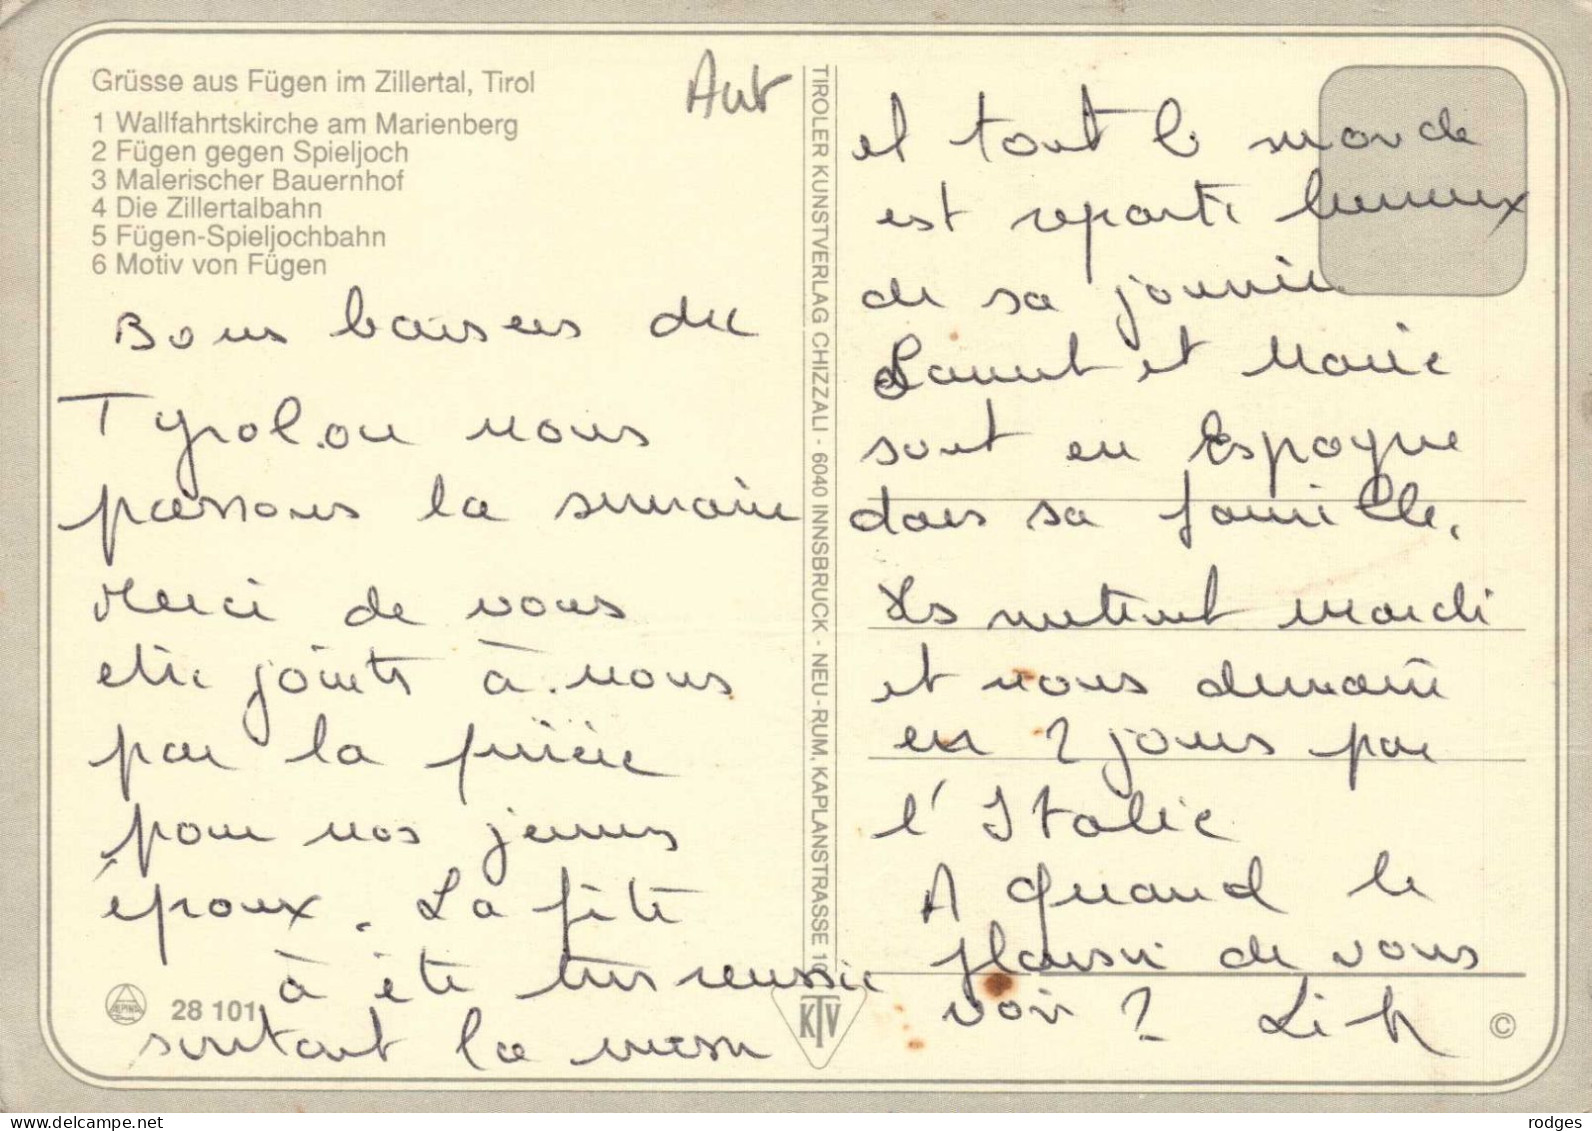 Grüsse aus Fügen im Zillertal, Tirol
1 Wallfahrtskirche am Marienberg
2 Fügen gegen Spieljoch
3 Malerischer Bauernhof
4 Die Zillertalbahn
5 Fügen-Spieljochbahn
6 Motiv von Fügen
Aut
Bons baisers du
Tyrol.ou nous
passons la semaine
Merci de vous
etre joints à nous
par la prière
pour nos jeunes
époux. La fête
à été tres reussie
surtout la messe
28 101
TIROLER KUNSTVERLAG CHIZZALI - 6040 INNSBRUCK - NEU-RUM, KAPLANSTRASSE 10
KTV
et tout le monde
est reparti heureux
de sa journée
Laurent et Marie
sont en Espagne
dans sa famille.
Ils rentrent mardi
et nous demain
en 2 jours par
l'Italie
A quand le
plaisir de vous
voir ?
©
rodges
www.delcampe.net